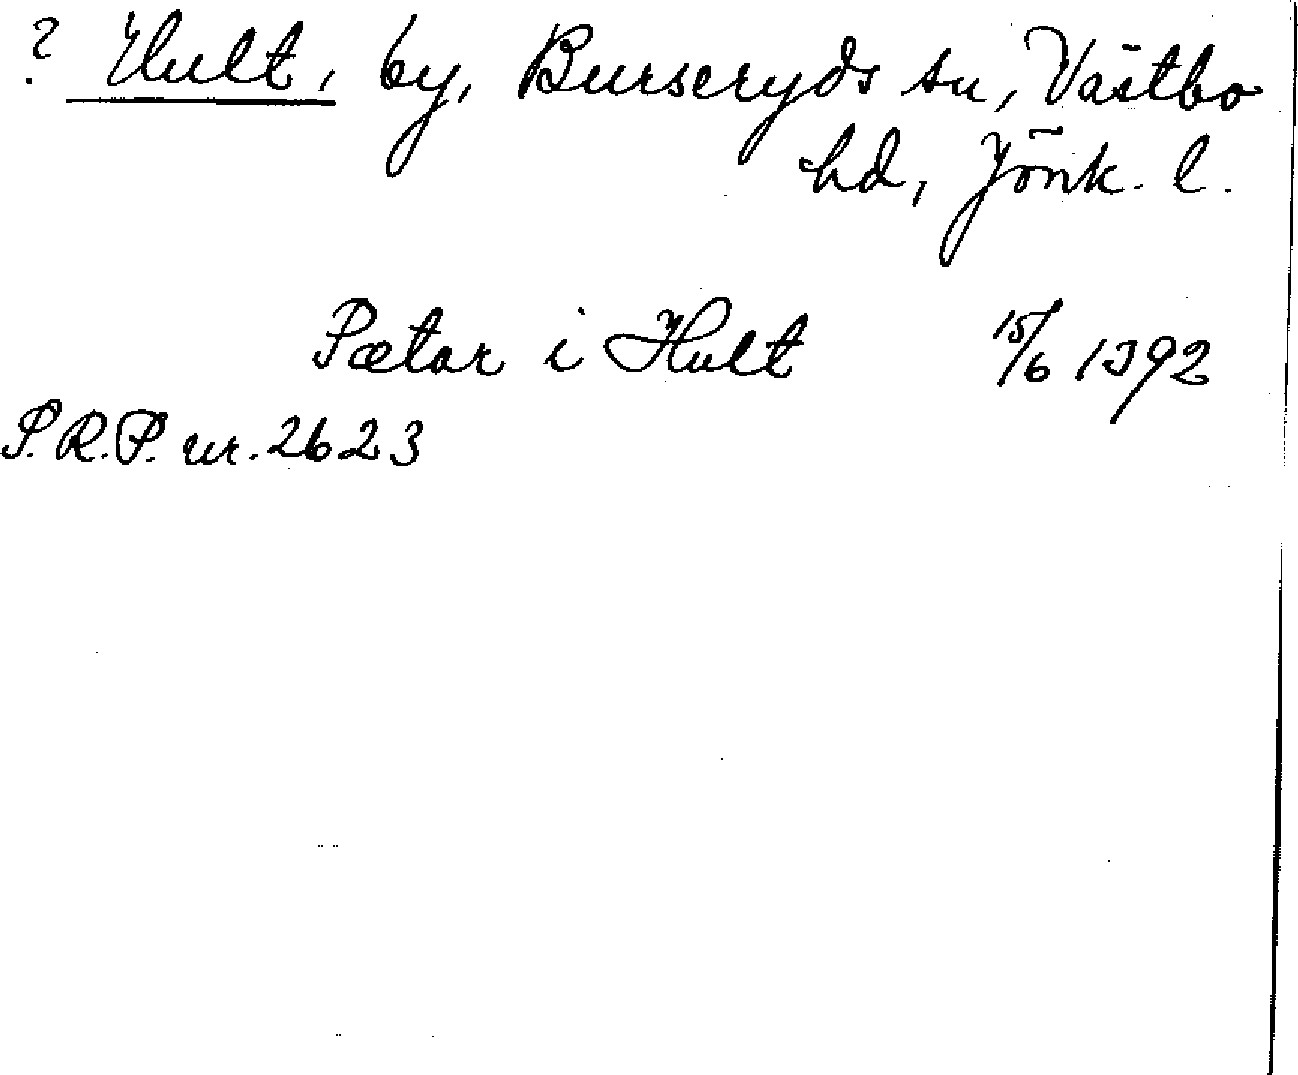 ? Hult, by, Burseryds sn, Västbo
hd, Jönk. l.
Pætar i Hult 15/6 1392
S.R.P. nr. 2623